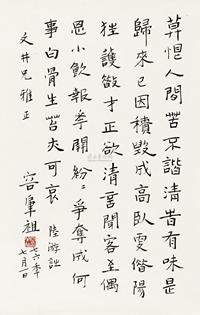 人間苦不諧清有味是
歸來已因積毀成高臥更借陽
狂護散才正欲清言聞客至偶
思小飲報開紛紛爭奪成何
事白骨生苔可哀 陸游詩
文井兄雅正
容肇祖
七六年
七月一日